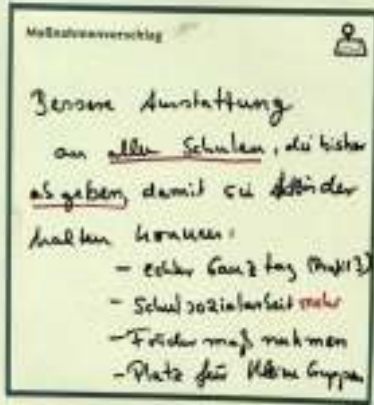 Maßnahmenvorschlag
Bessere Ausstattung
an allen Schulen, die bisher
abgeben, damit sie Kinder
halten können:
- echter Ganztag (Profil 3)
- Schulsozialarbeit mehr
- Fördermaßnahmen
- Platz für kleine Gruppen